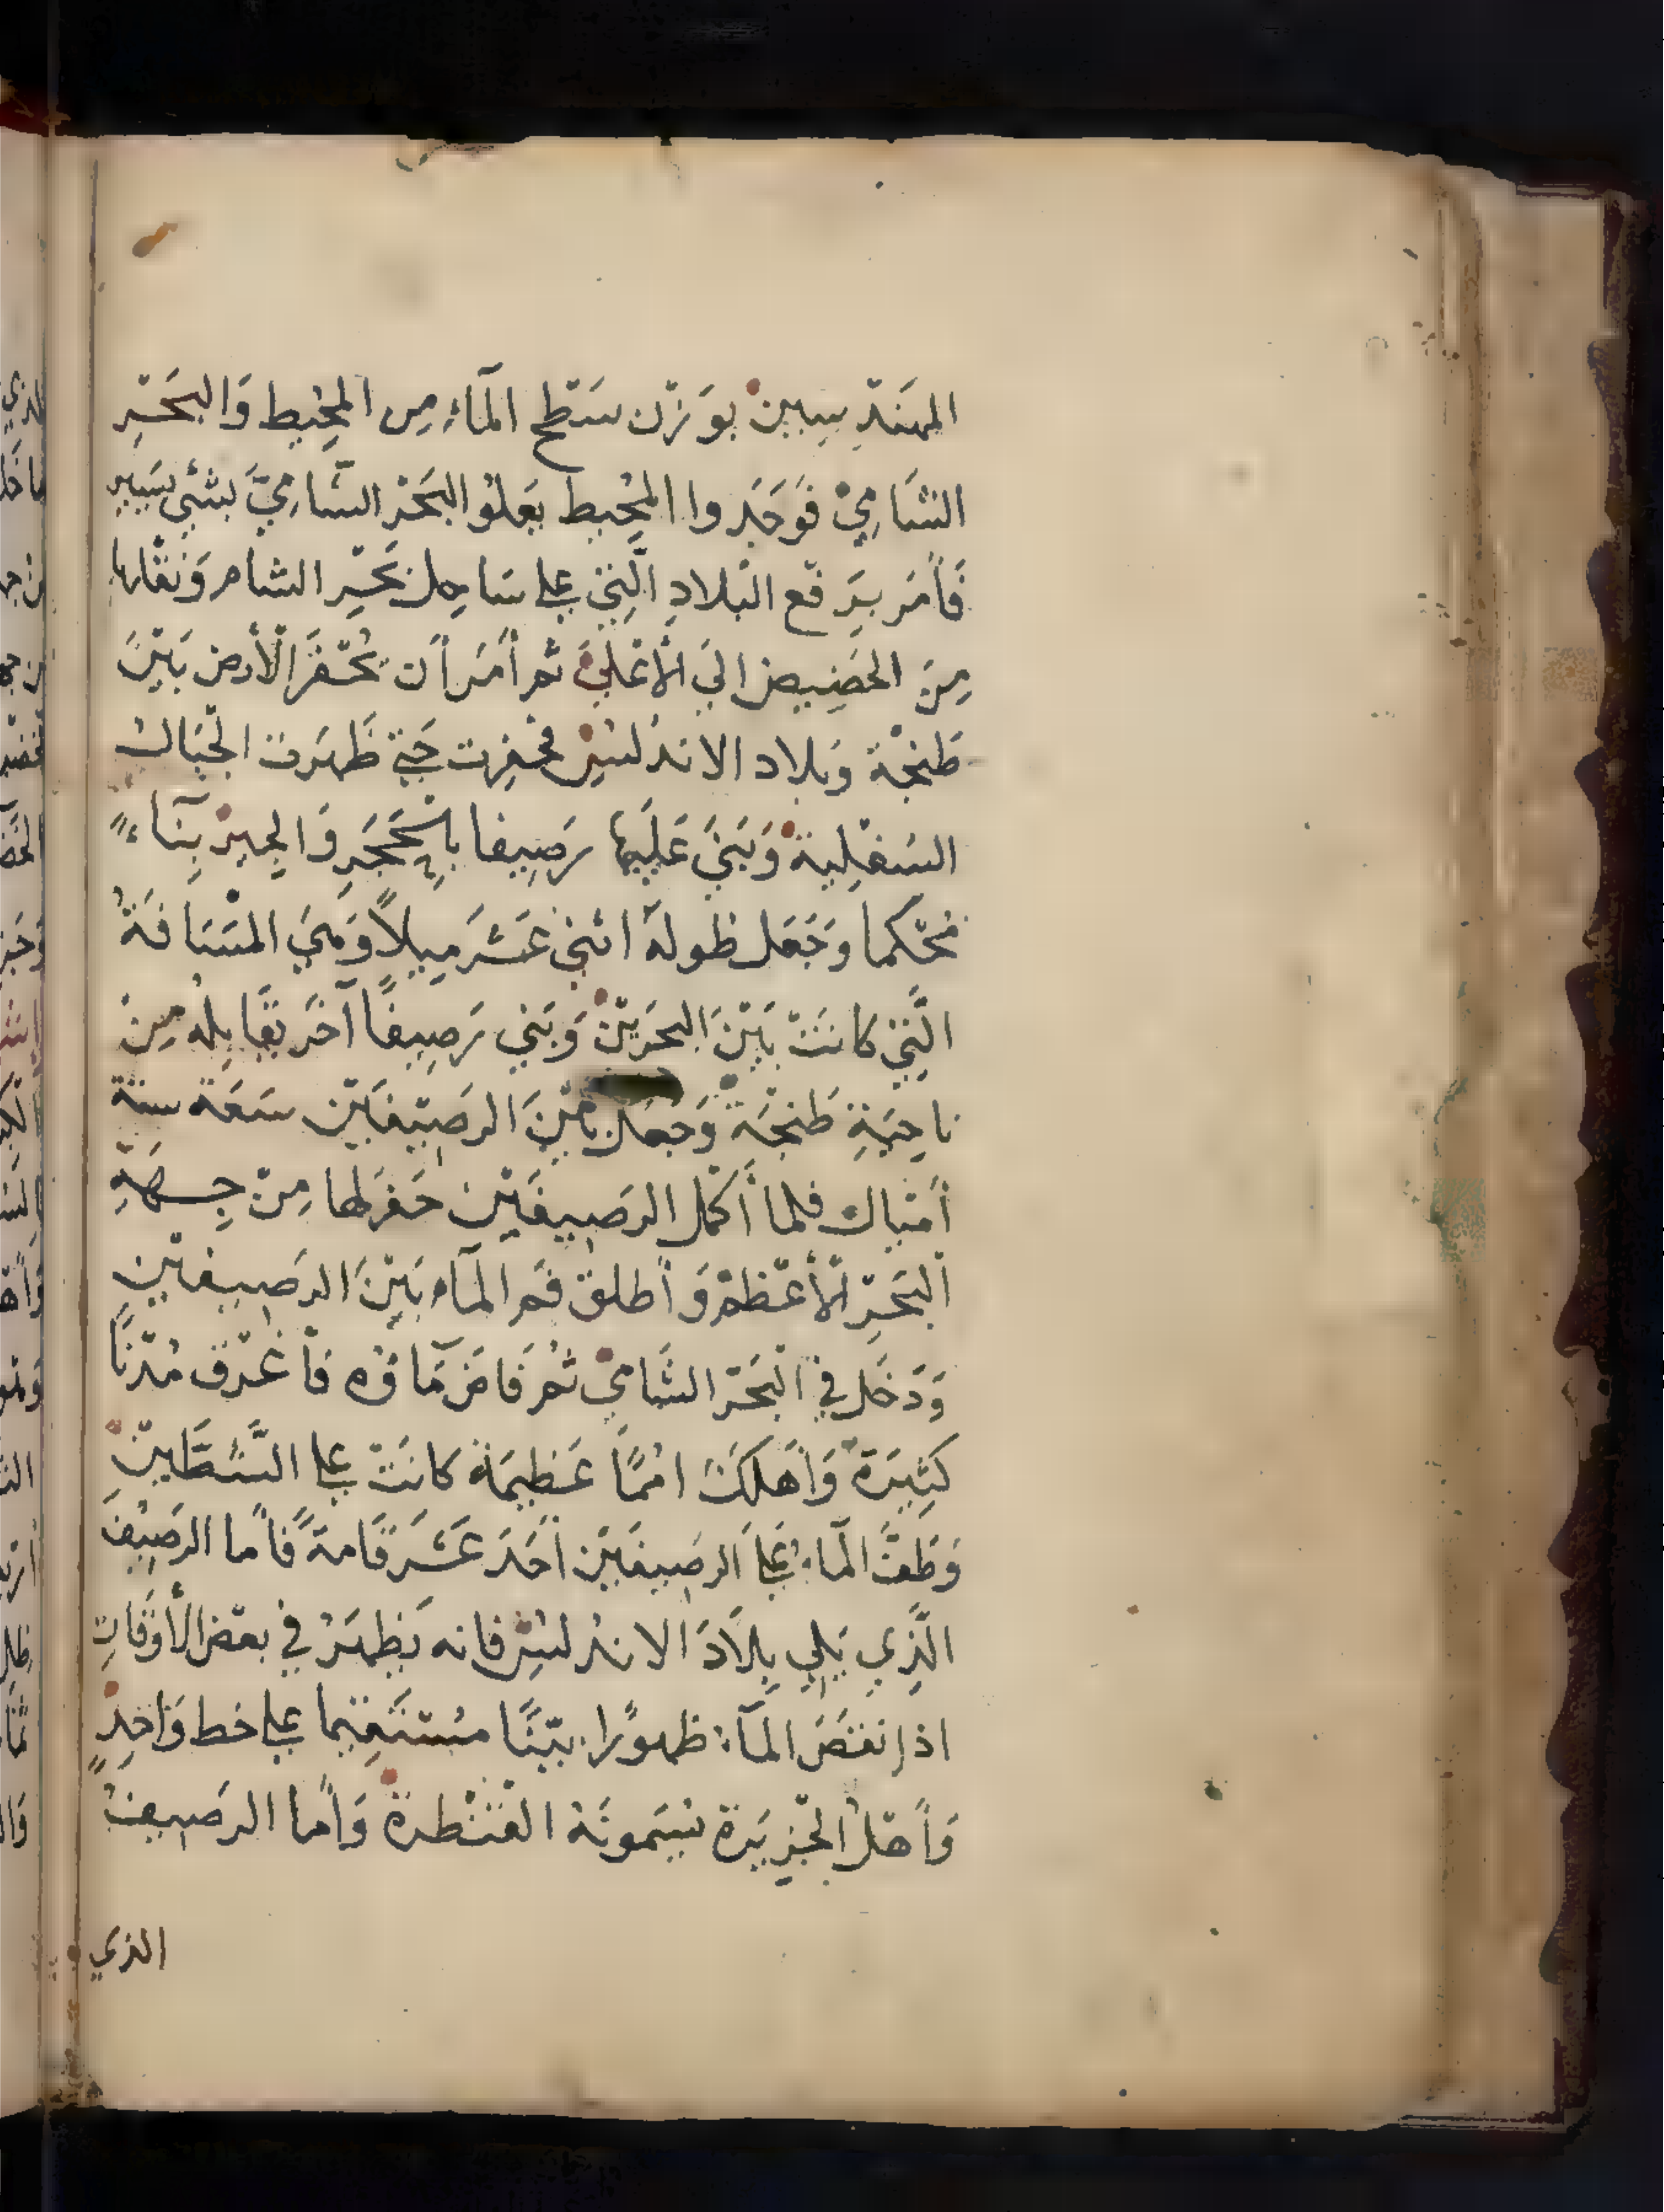 المهَندِسِينْ بوَزْن سَطْح المآءِ مِن المُحِيط وَالبَحْرِ
الشَامِيْ فَوَجَدوا المُحِيط يَعلوُ البَحْر الشّامِيَّ بشئي يَسِير
فَأمَر برَفْع البْلادِ الَّتِي علي سَاحِل بَحْرِ الشام وَنقْلها
مِنَ الحَضِيضِ الي الأعْليَ ثم أمَر أن تُحْفَر الْأرض بَيْنَ
طَنجْة وَبلاد الاندلسْ فحفِرت حَتي ظَهرَت الْجبَالُ
السَفْلِية وَبَنيَ عَلَيها رَصِيفا بالْحَجَرِ وَالجِيرْ بِنآءً
مُحْكما وَجَعَل طوله اثني عَشَر مِيلاً وَهيَ المسَافَةُ
الَّتِي كانَتْ بَيْنَ البحَريْنْ وَبَني رَصِيفًا آخَر يقَابِلهُ مِنْ
ناحِيَةِ طَنجْة وَجعل بَيْنَ الرصَيفَيْن سَعَة ستة
أمْيال فلما أكمل الرصِيفَيْن حَفر لها مِنْ جِهَةِ
الْبَحْرِ الْأعْظمْ وَأطلق فَم المآء بَيْنَ الرصِيفيْن
وَدَخَل في الْبَحْر الشَامِي ثُم فَاض مَآؤه فأغْرَق مُدْنًا
كَثِيرَة وَأهلَكَ امُمًا عَظِيمَة كانَتْ علي الشَّطَّيْنْ
وَطَفَّ المآءُ عَلَي الرصِيفَيْن أحَدَ عَشَر قَامَة فَأما الرصِيفَ
الَّذِي يَلِي بِلَادَ الاندلسِ فانه يَظهَرُ في بعْض الْأوْقَاتِ
اذا نقَصَ المآءُ ظهوُرًا بيّنًا مسْتَقِيما علي خط وَاحِدٍ
وَأهْلُ الْجزِيرَة يسَمونَهُ القَنْطرة وَأما الرصِيفُ
الذي